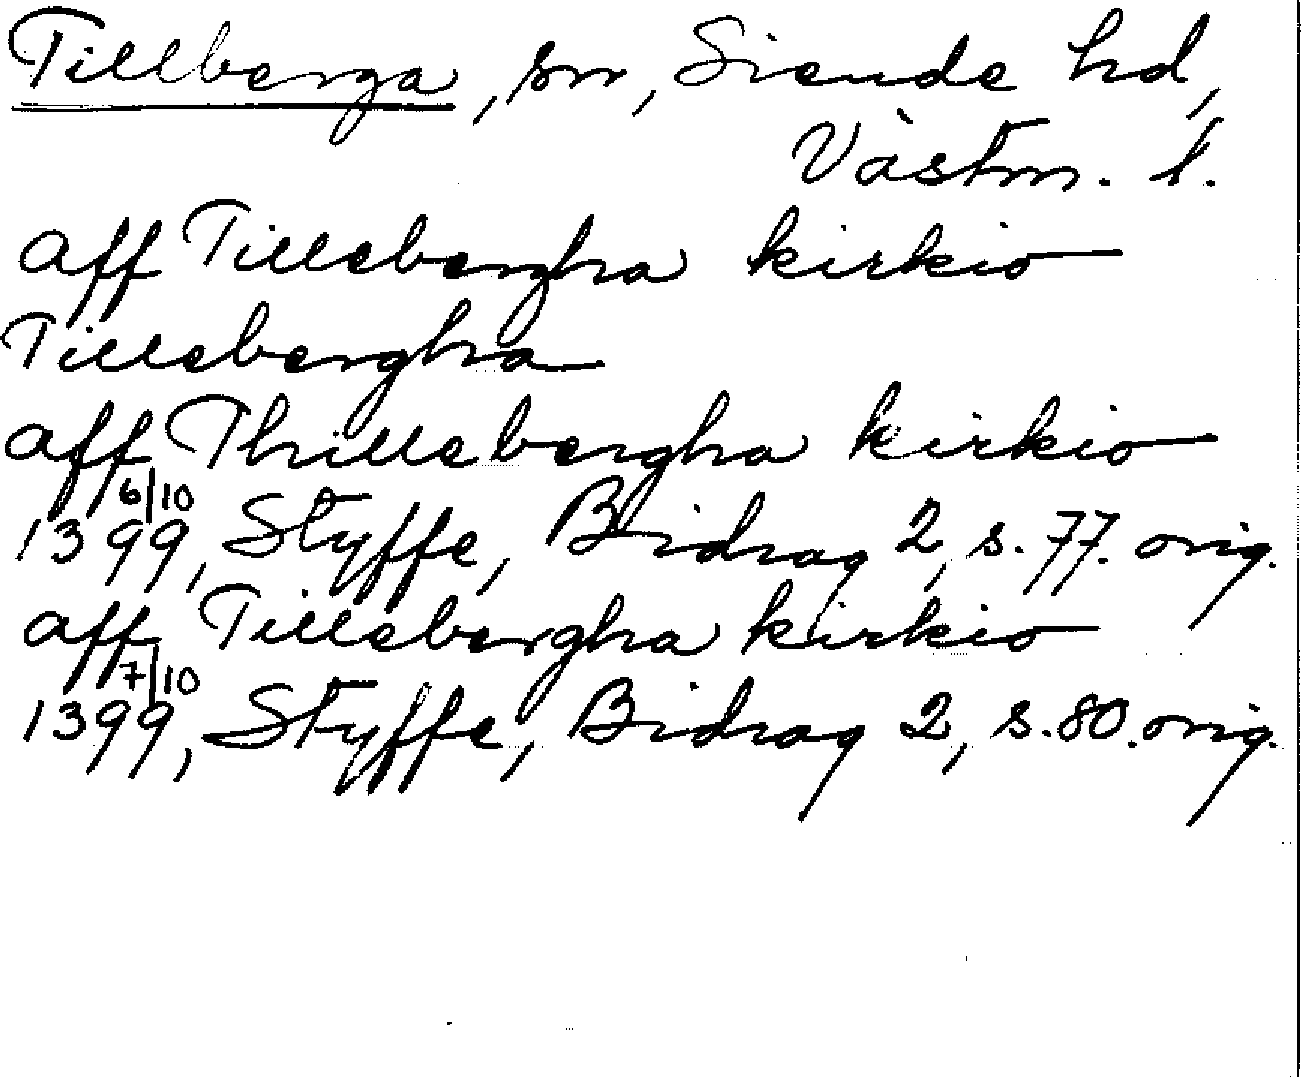 Tillberga, sn, Siende hd,
Västm. l.
aff Tillebergha kirkio
Tillebergha
aff Thillebergha kirkio
6/10
1399, Styffe, Bidrag 2, s. 77. orig.
aff Tillebergha kirkio
7/10
1399, Styffe, Bidrag 2, s. 80. orig.